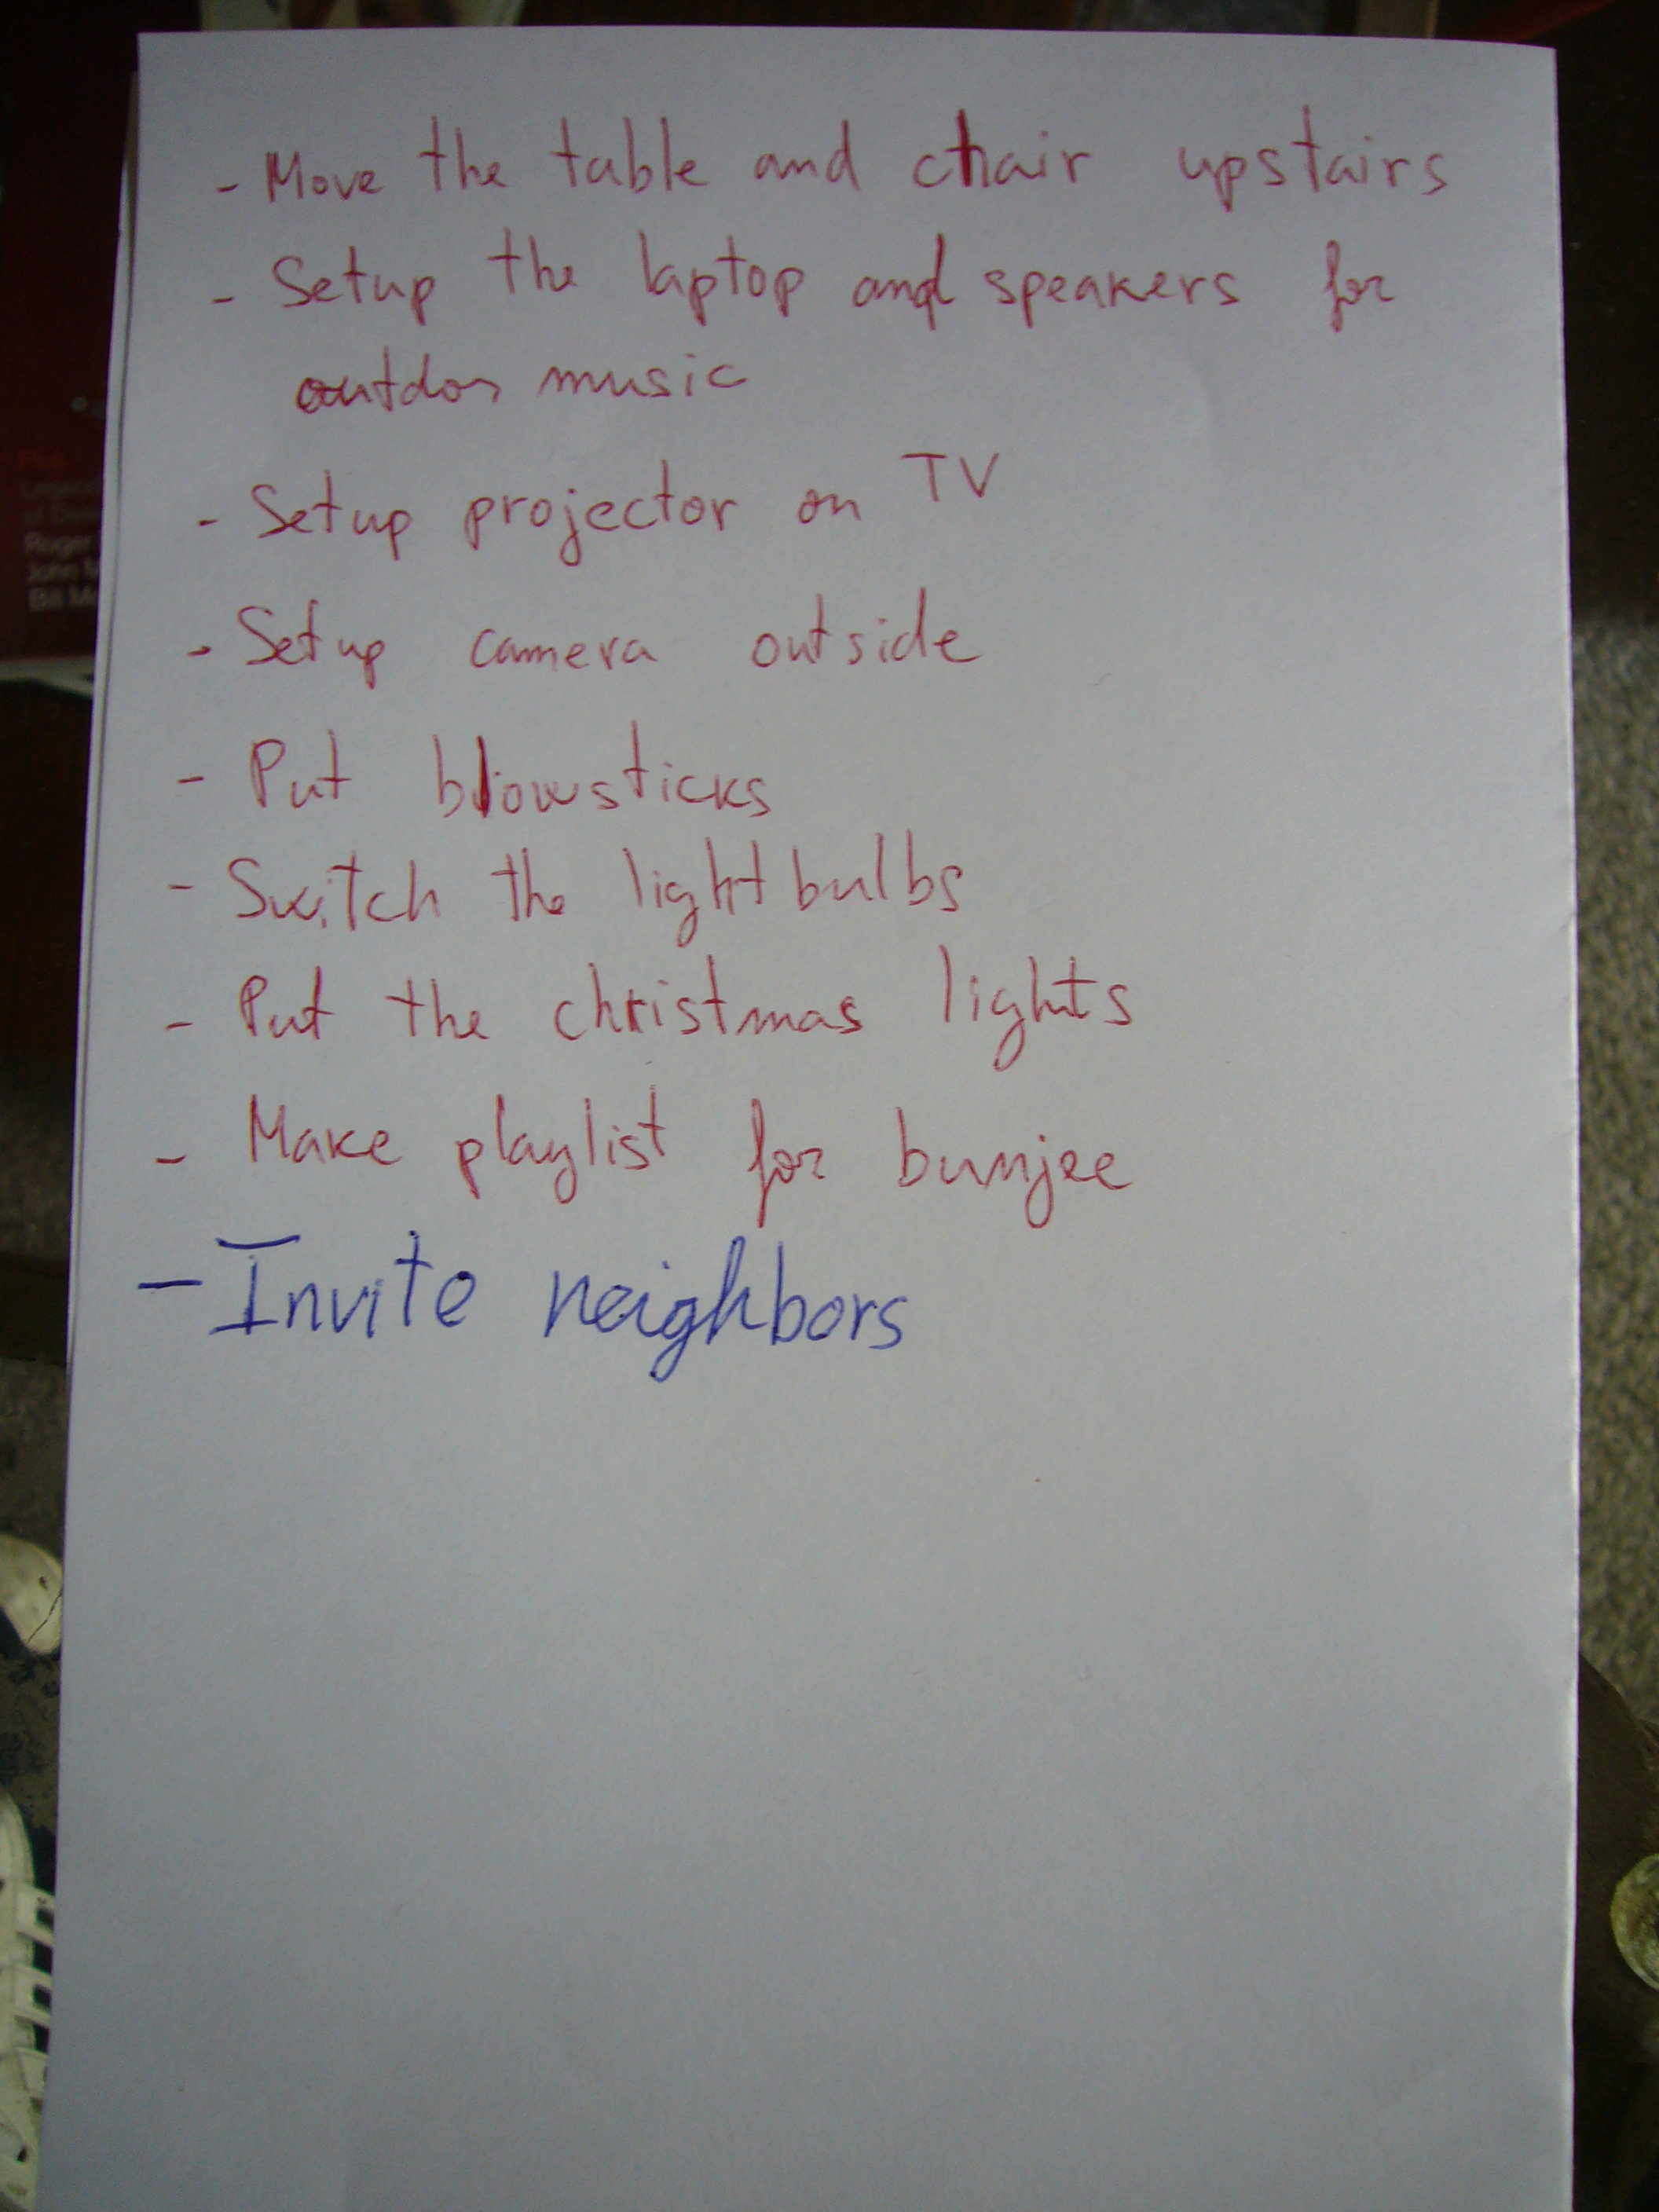 - Move the table and chair upstairs
- Setup the laptop and speakers for
outdor music
- Setup projector on TV
- Setup camera outside
- Put blowsticks
- Switch the lightbulbs
- Put the christmas lights
- Make playlist for bunjee
- Invite neighbors
Roger
John M
Bill Mc